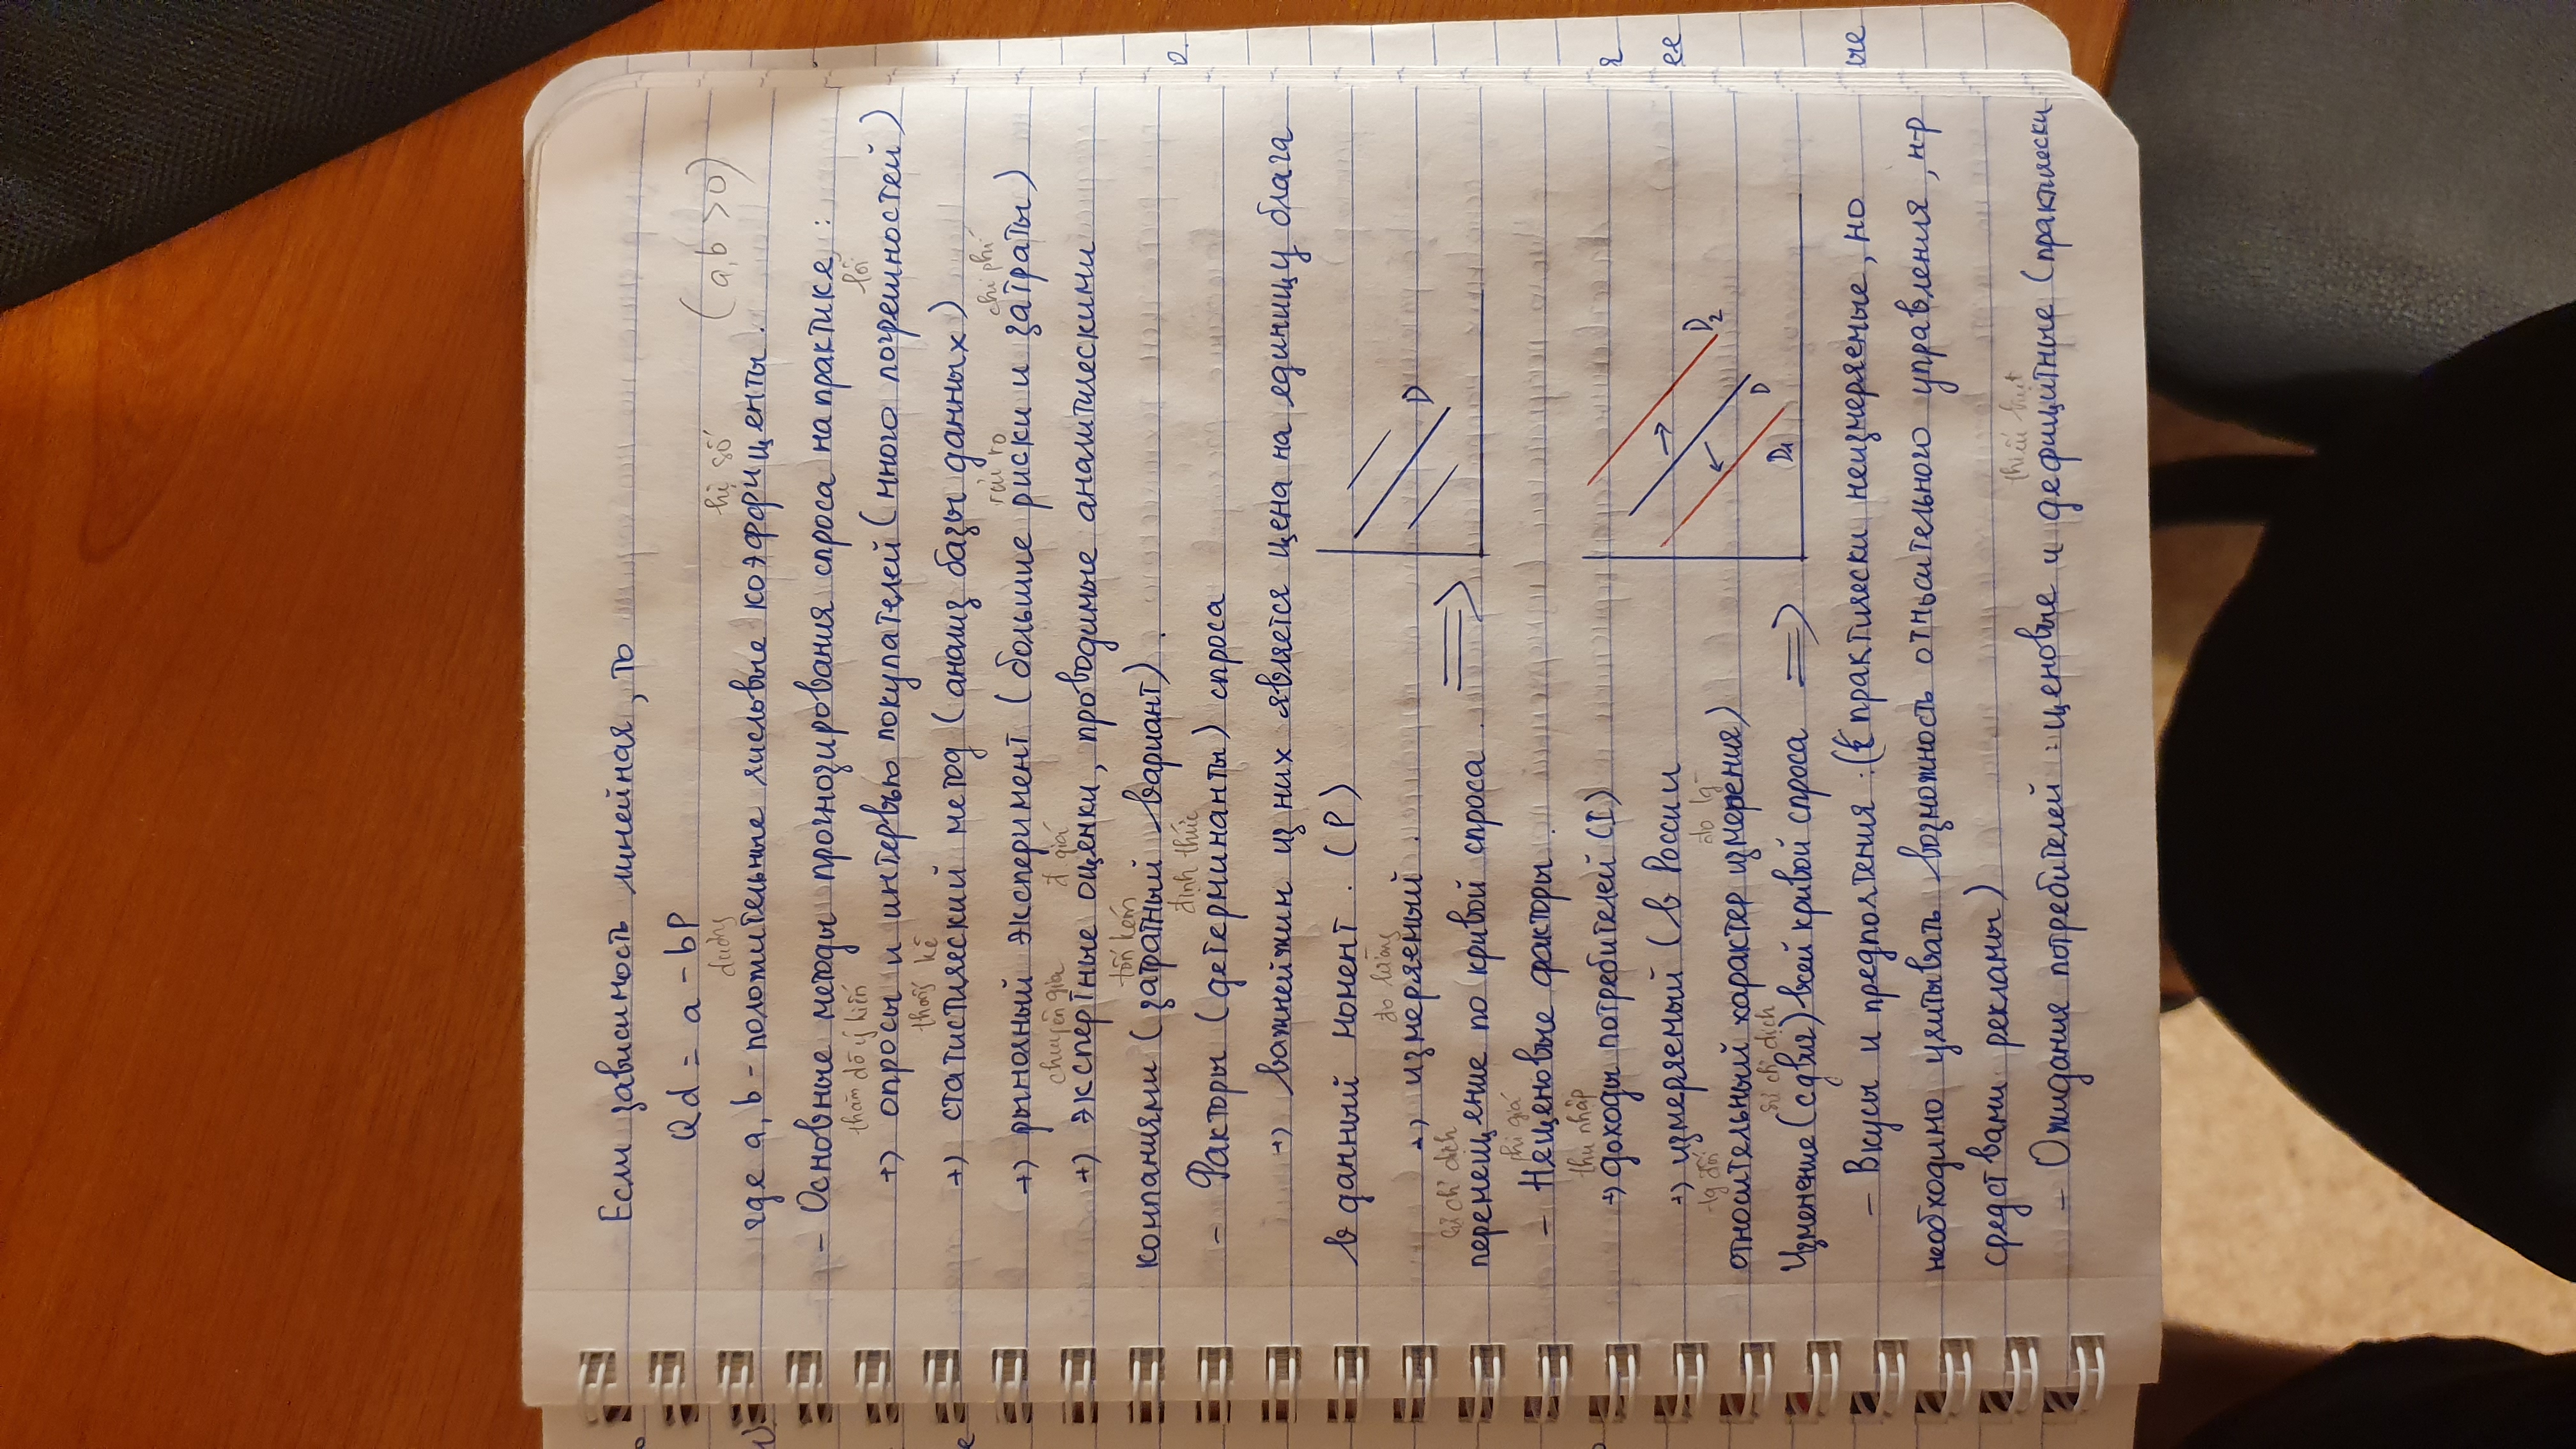 Если зависимость линейная, то
Qd = a - bP
(a, b > 0)
dương
hệ số
где a, b - положительные числовые коэффициенты.
- Основные методы прогнозирования спроса на практике :
thăm dò ý kiến
lỗi
+) опросы и интервью покупателей (много погрешностей)
thống kê
+) статистический метод (анализ базы данных)
rủi ro
chi phí
+) рыночный эксперимент (большие риски и затраты)
chuyên gia
đ giá
+) экспертные оценки, проводимые аналитическими
tốn kém
компаниями (затратный вариант).
định thức
- Факторы (детерминанты) спроса
+) важнейжин из них является цена на единицу блага
в данный момент. (P)
đo lường
+) измеряемый.
D
sự ch dịch
перемещение по кривой спроса. ⟹
phi giá
- Неценовые факторы.
thu nhập
+) доходы потребителей (I)
+) измеряемый (в России
tg đối
đo lg
относительный характер измерения)
D2
D
D1
sự ch dịch
Изменение (сдвиг) всей кривой спроса ⟹
- Вкусы и предпочтения : (практически неизмеряемые, но
необходимо учитывать возможность относительного управления, н-р
средствами рекламы)
thiếu hụt
- Ожидания потребителей : ценовые и дефицитные (практически